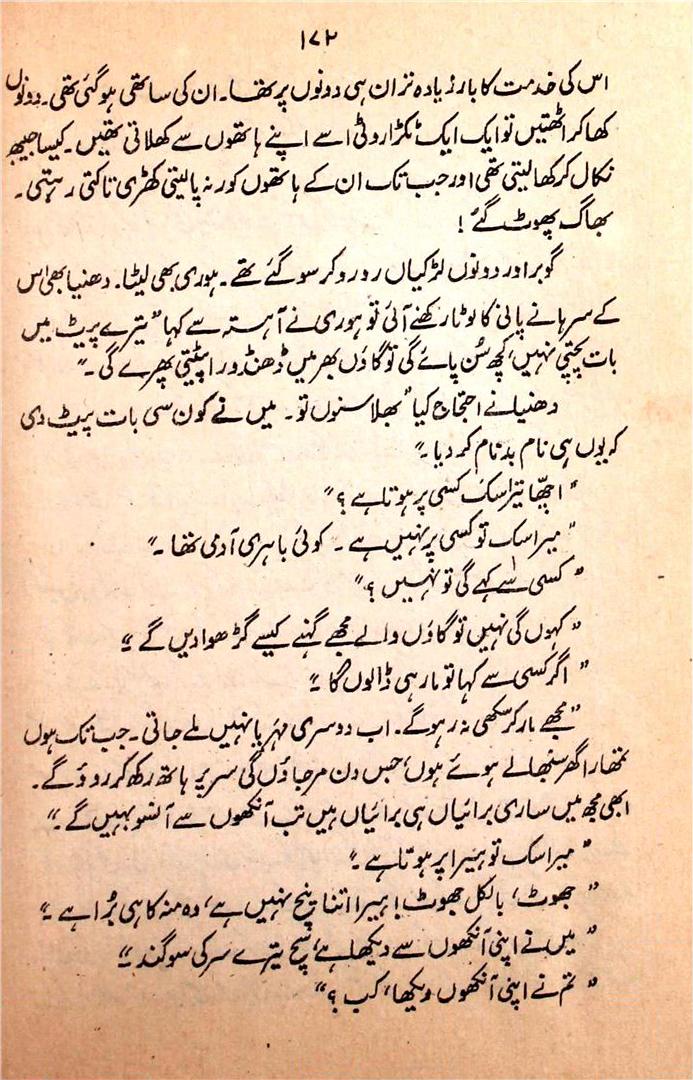 ۱۷۲
اس کی خدمت کا بار زیادہ تر ان ہی دونوں پر تھا۔ ان کی ساتھی ہو گئی تھی۔ دونوں
کھا کر اٹھتیں تو ایک ایک ٹکڑا روٹی اسے اپنے ہاتھوں سے کھلاتی تھیں۔ کیسا جیبھ
نکال کر کھا لیتی تھی اور جب تک ان کے ہاتھوں کور نہ پا لیتی کھڑی تاکتی رہتی۔
بھاگ پھوٹ گئے!
گوبر اور دونوں لڑکیاں رو رو کر سو گئے تھے۔ ہوری بھی لیٹا۔ دھنیا بھی اس
کے سرہانے پانی کا لوٹا رکھنے آئی تو ہوری نے آہستہ سے کہا "تیرے پیٹ میں
بات پچتی نہیں، کچھ سُن پائے گی تو گاؤں بھر میں ڈھنڈورا پیٹتی پھرے گی۔"
دھنیا نے احتجاج کیا "بھلا سنوں تو۔ میں نے کون سی بات پیٹ دی
کہ یوں ہی نام بدنام کر دیا۔"
"اچھا تیرا سک کسی پر ہوتا ہے؟"
"میرا سک تو کسی پر نہیں ہے۔ کوئی باہری آدمی تھا۔"
"کسی سے کہے گی تو نہیں؟"
"کہوں گی نہیں تو گاؤں والے مجھے گہنے کیسے گڑھوا دیں گے۔"
"اگر کسی سے کہا تو مار ہی ڈالوں گا۔"
"مجھے مار کر سکھی نہ رہو گے۔ اب دوسری مہریا نہیں ملے جاتی۔ جب تک ہوں
تمھارا گھر سنبھالے ہوئے ہوں، جس دن مر جاؤں گی سر پر ہاتھ رکھ کر روؤ گے۔
ابھی مجھ میں ساری برائیاں ہی برائیاں ہیں تب آنکھوں سے آنسو بہیں گے۔"
"میرا سک تو ہیرا پر ہوتا ہے۔"
"جھوٹ، بالکل جھوٹ! ہیرا اتنا پنچ نہیں ہے، وہ منہ کا ہی بُرا ہے۔"
"میں نے اپنی آنکھوں سے دیکھا ہے، سچ تیرے سر کی سوگند۔"
"تم نے اپنی آنکھوں دیکھا، کب؟"